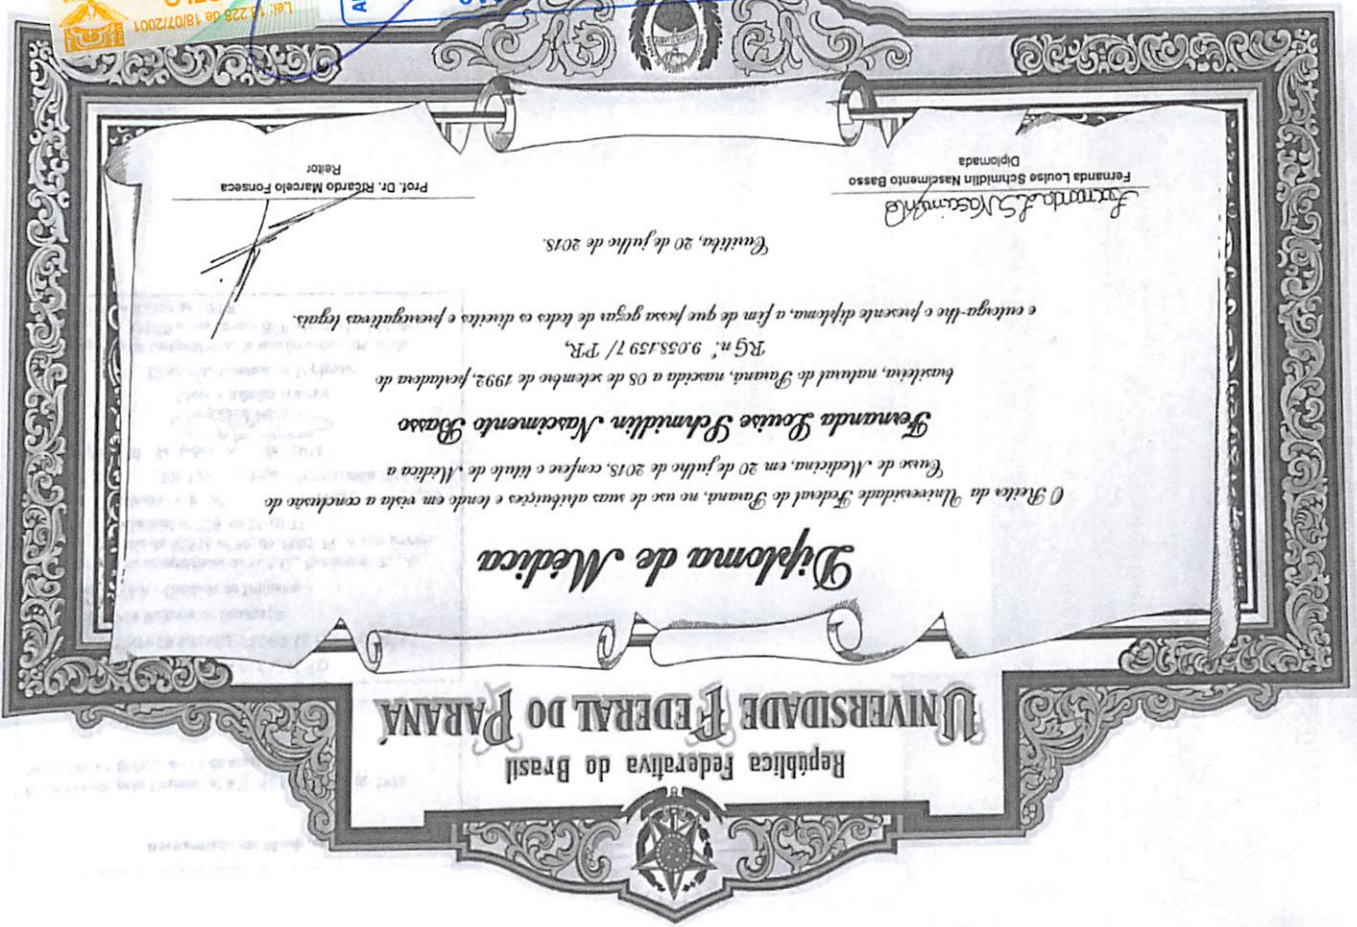 República Federativa do Brasil
UNIVERSIDADE FEDERAL DO PARANÁ
Diploma de Médica
O Reitor da Universidade Federal do Paraná, no uso de suas atribuições e tendo em vista a conclusão do
Curso de Medicina, em 20 de julho de 2018, confere o título de Médica a
Fernanda Louise Schmidlin Nascimento Basso
brasileira, natural do Paraná, nascida a 08 de setembro de 1992, portadora do
RG nº. 9.058.159 7/ PR,
e outorga-lhe o presente diploma, a fim de que possa gozar de todos os direitos e prerrogativas legais.
Curitiba, 20 de julho de 2018.
Fernanda L S Nascimento
Fernanda Louise Schmidlin Nascimento Basso
Diplomada
Prof. Dr. Ricardo Marcelo Fonseca
Reitor
Lei: 13.228 de 18/07/2001